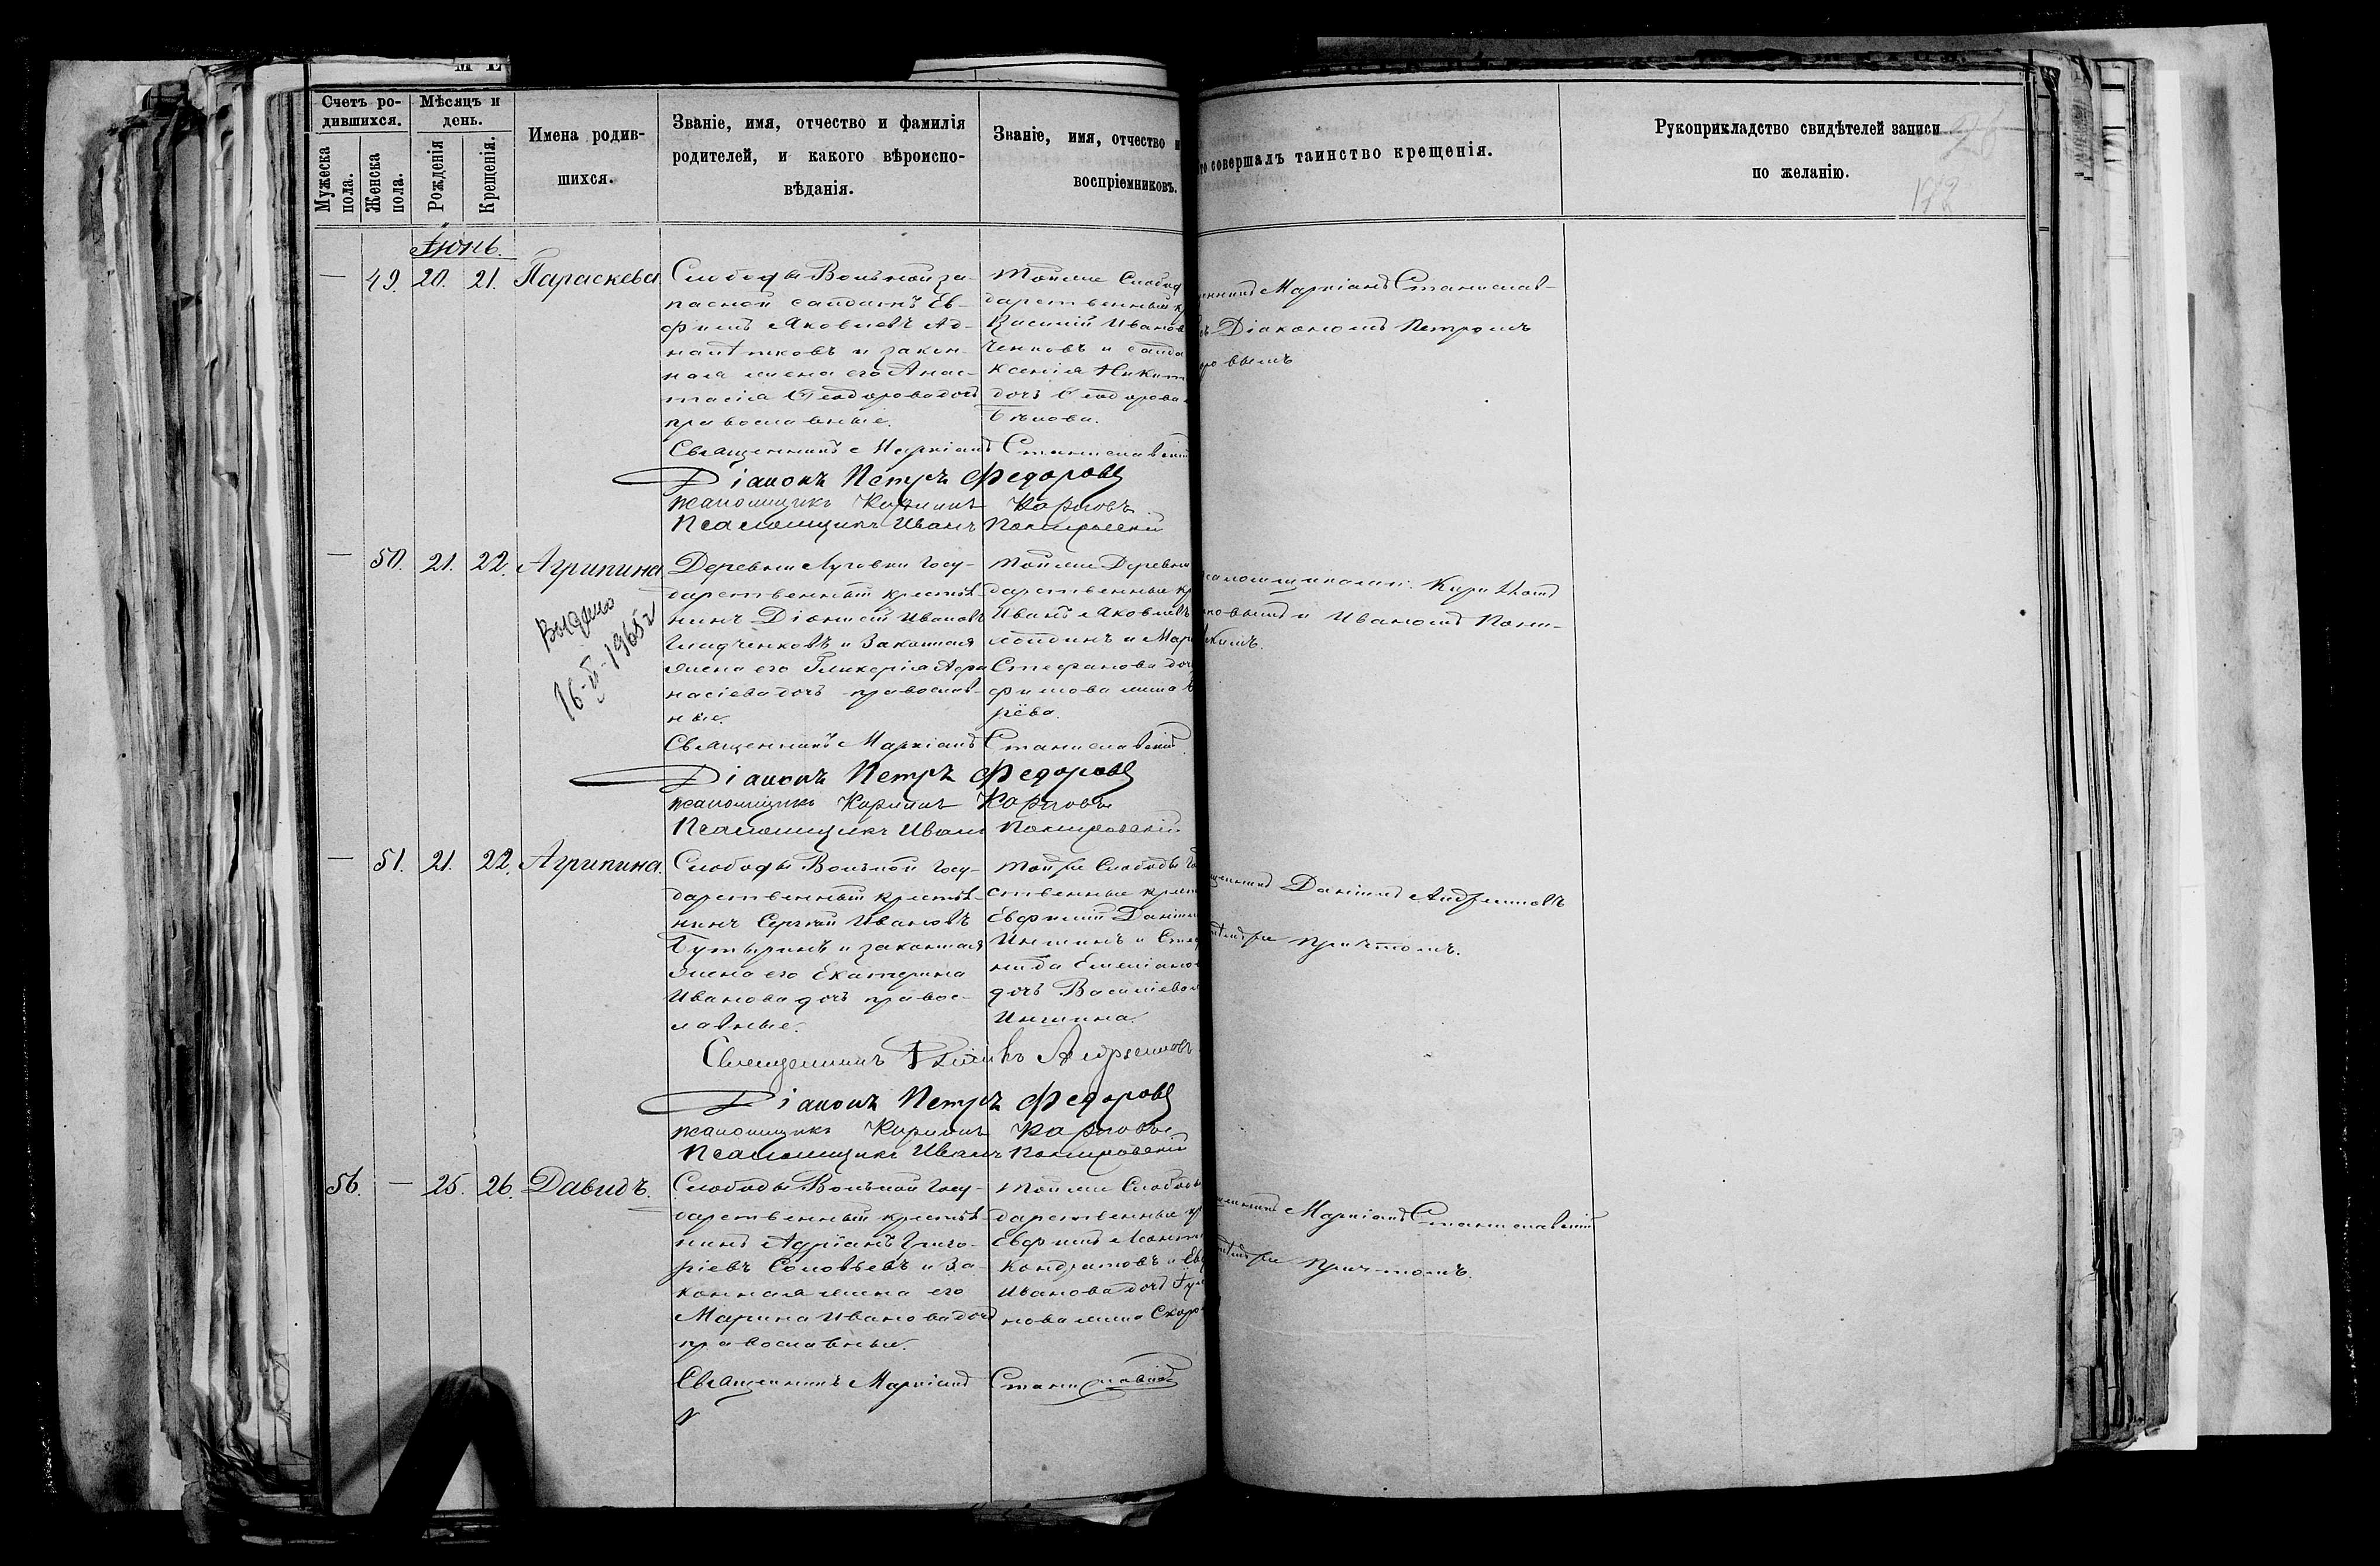 М Е
Счетъ ро-
дившихся.
Мѣсяцъ и
день.
Мужеска
пола.
Женска
пола.
Рожденія
Крещенія.
Имена родив-
шихся.
Званіе, имя, отчество и фамилія
родителей, и какого вѣроиспо-
вѣданія.
Званіе, имя, отчество и
воспріемниковъ.
то совершалъ таинство крещенія.
Рукоприкладство свидѣтелей записи
по желанію.
172
Іюнь.
— 49. 20. 21. Параскева
Слободы Вольной за-
пасной солдатъ Ев-
фимъ Яковлевъ
и закон-
ная жена его Анас-
тасія Ѳеодорова дочь
православные.
Тойже Слобод
дарственный к
Василій Иванов
ченковъ и солда
Ксенія Никит
дочь Ѳеодорова
енникъ Маркіанъ Станислав-
ъ Діакономъ Петромъ
ровымъ
Священникъ Маркіанъ Станиславскій
Діаконъ Петръ Федоровъ
Псаломщикъ Кириллъ Карповъ
Псаломщикъ Иванъ Покировскій
— 50. 21. 22. Агрипина
Выдано
16-II-1965 г
Деревни Луговки Госу-
дарственный крестья-
нинъ Діонисій Ивановъ
Гладченковъ и Законная
жена его Гликерія Афа
насіева дочь православ-
ные.
Тойже Деревни
дарственные кр
Иванъ Яковлевъ
и Мар
Стефанова доч
фимова жена
рёва.
саломщиками: Кирилломъ
повымъ и Иваномъ Поки-
скимъ.
Священникъ Маркіанъ Станиславскій
Діаконъ Петръ Федоровъ
Псаломщикъ Кириллъ Карповъ
Псаломщикъ Иванъ Покировскій
— 51. 21. 22. Агрипина.
Слободы Вольной Госу-
дарственный крестья-
нинъ Сергѣй Ивановъ
Бутыринъ и законная
жена его Екатерина
Иванова дочь правос-
лавные.
Тойже Слободы Го
ственные крест
Евфимій Даніил
Иншинъ и Сте
нида Емеліано
дочь Василіева
Иншина.
щенникъ Даніилъ Андреенковъ
тѣмъ же причтомъ.
Священникъ Даніилъ Андреенковъ
Діаконъ Петръ Федоровъ
Псаломщикъ Кириллъ Карповъ
Псаломщикъ Иванъ Покировскій
56. — 25. 26. Давидъ.
Слободы Вольной Госу-
дарственный крестья-
нинъ Адріанъ Григо-
ріевъ Соловьевъ и За-
конная жена его
Марина Иванова дочь
православные.
Тойже Слободы
дарственные кр
Евфимъ Леонт
Кондратовъ и Ев
Иванова дочь
нова жена Скоро
щенникъ Маркіанъ Станиславскій
тѣмъ же причтомъ.
Священникъ Маркіанъ Станиславскій